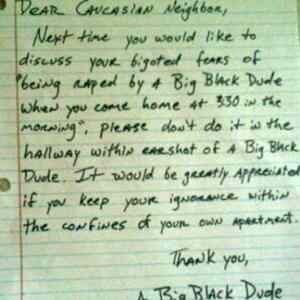 Dear Caucasian Neighbor,
Next time you would like to
discuss your bigoted fears of
"being raped by A Big Black Dude
when you come home at 3:30 in the
morning", please don't do it in the
hallway within earshot of A Big Black
Dude. It would be greatly appreciated
if you keep your ignorance within
the confines of your own apartment.
Thank you,
A Big Black Dude